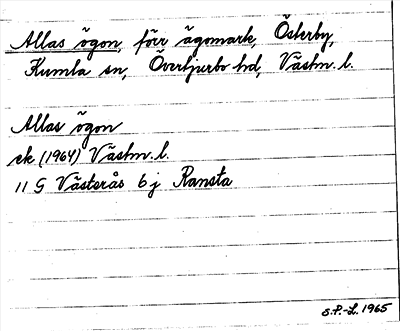 Allas ögon, förr ägomark, Österby,
Kumla sn, Övertjurbo hd, Västm. l.
Allas ögon
ek (1964) Västm. l.
11 G Västerås 6 j Ransta
S.P.-L. 1965